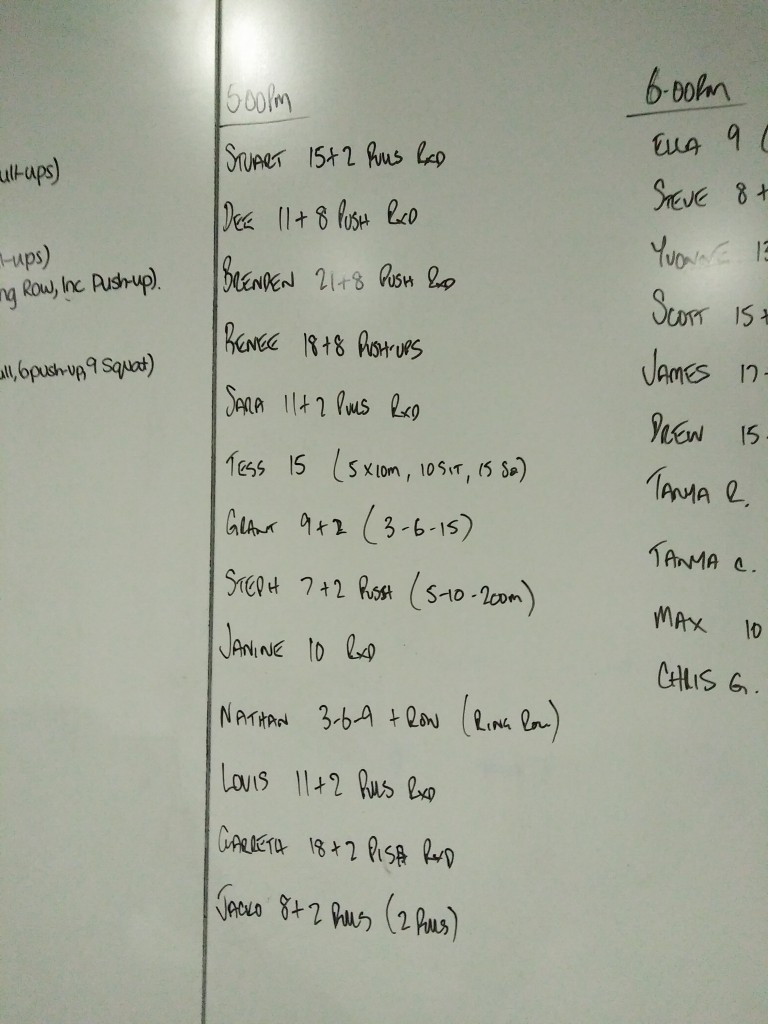 ull-ups)
l-ups)
ng Row, Inc Push-up).
all, 6 push-up, 9 Squat)
5:00Pm
STUART 15+2 PULLS RXD
DEE 11+8 PUSH RXD
BRENDEN 21+8 PUSH RXD
RENEE 18+8 PUSH-UPS
SARA 11+2 PULLS RXD
TESS 15 (5X10M, 10 SIT, 15 SQ)
GRANT 9+2 (3-6-15)
STEPH 7+2 PUSH (5-10-200m)
JANINE 10 RXD
NATHAN 3-6-9 + ROW (RING ROW)
LOUIS 11+2 PULLS RXD
GARRETH 18+2 PUSH RXD
JACKO 8+2 PULLS (2 PULLS)
6:00Pm
ELLA 9 (
STEVE 8+
YVONNE 13
SCOTT 15+
JAMES 17
DREW 15
TANYA R.
TANYA C.
MAX 10
CHRIS G.